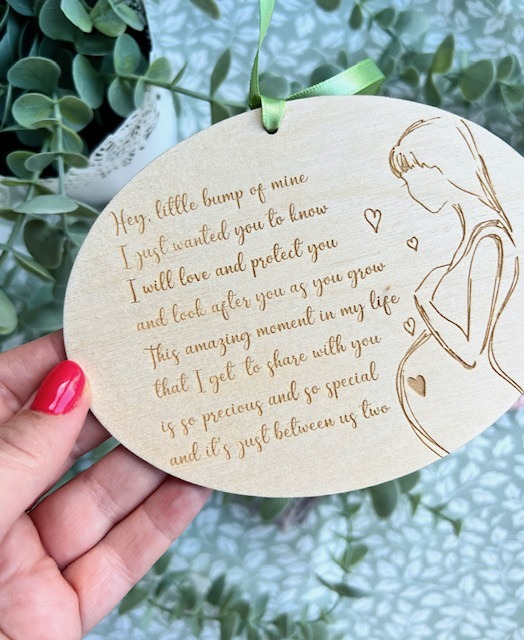 Hey, little bump of mine
I just wanted you to know
I will love and protect you
and look after you as you grow
This amazing moment in my life
that I get to share with you
is so precious and so special
and it's just between us two